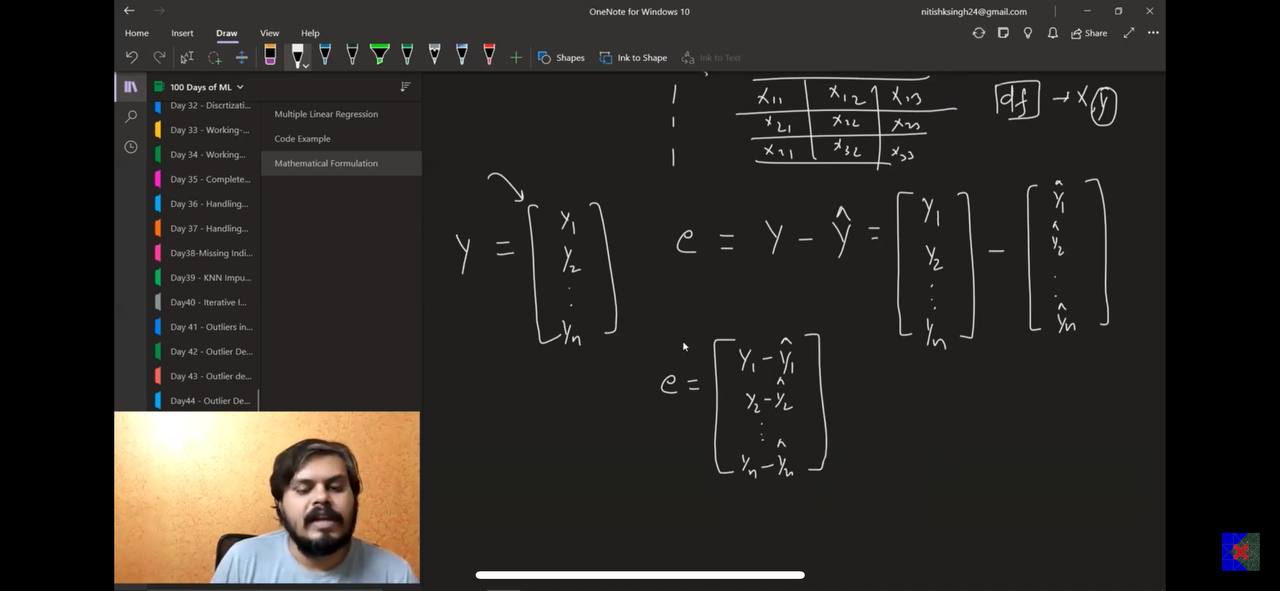 OneNote for Windows 10
nitishksingh24@gmail.com
Home Insert Draw View Help
Share
Shapes Ink to Shape Ink to Text
100 Days of ML
Day 32 - Discrtizati...
Day 33 - Working-...
Day 34 - Working...
Day 35 - Complete...
Day 36 - Handling...
Day 37 - Handling...
Day38-Missing Indi...
Day39 - KNN Impu...
Day40 - Iterative I...
Day 41 - Outliers in...
Day 42 - Outlier De...
Day 43 - Outlier de...
Day44 - Outlier De...
Multiple Linear Regression
Code Example
Mathematical Formulation
1 x11 x12 x13 df → x y
1 x21 x22 x23
1 x31 x32 x33
y = [ y1 y2 . . yn ]
e = y - ŷ = [ y1 y2 ⋮ yn ] - [ ŷ1 ŷ2 . . ŷn ]
e = [ y1 - ŷ1
y2 - ŷ2
⋮
yn - ŷn ]